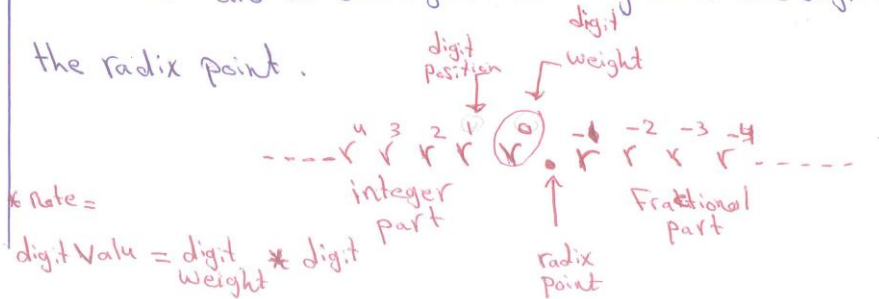 the radix point.
digit position
digit weight
---- r⁴ r³ r² r¹ r⁰ . r⁻¹ r⁻² r⁻³ r⁻⁴ -----
integer part
Fractional part
radix point
* Note =
digit Valu = digit weight * digit